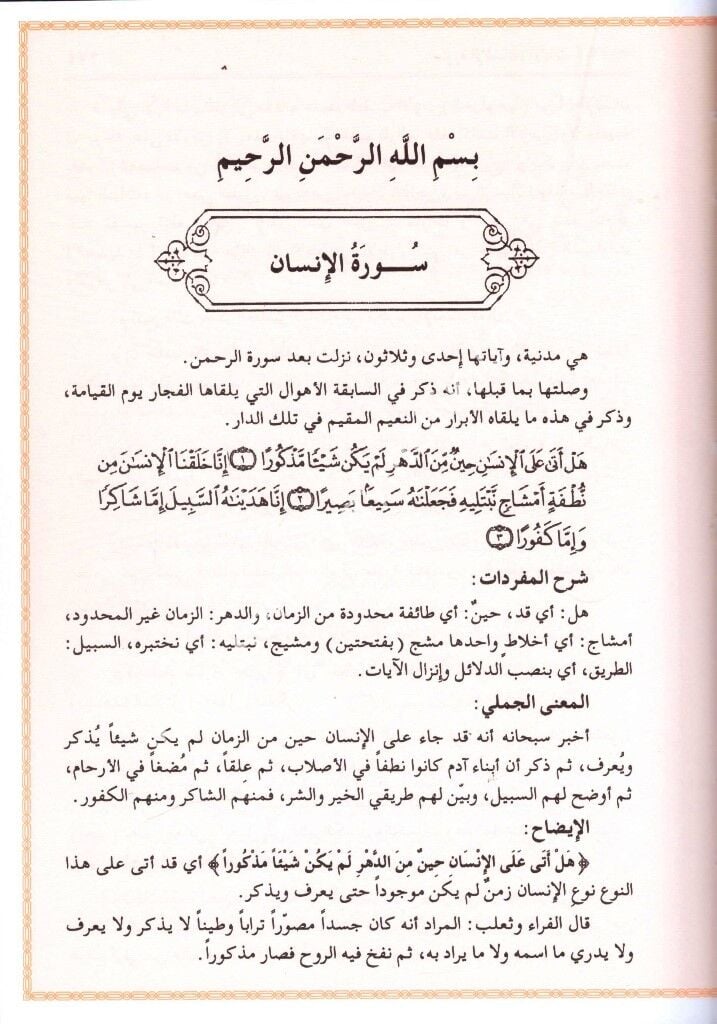 بِسْمِ اللَّهِ الرَّحْمَنِ الرَّحِيمِ
سُورَةُ الإِنسان
هي مدنية، وآياتها إحدى وثلاثون، نزلت بعد سورة الرحمن.
وصلتها بما قبلها، أنه ذكر في السابقة الأهوال التي يلقاها الفجار يوم القيامة،
وذكر في هذه ما يلقاه الأبرار من النعيم المقيم في تلك الدار.
هَلْ أَتَىٰ عَلَى ٱلْإِنسَٰنِ حِينٌ مِّنَ ٱلدَّهْرِ لَمْ يَكُن شَيْـًٔا مَّذْكُورًا ۝١ إِنَّا خَلَقْنَا ٱلْإِنسَٰنَ مِن
نُّطْفَةٍ أَمْشَاجٍ نَّبْتَلِيهِ فَجَعَلْنَٰهُ سَمِيعًۢا بَصِيرًا ۝٢ إِنَّا هَدَيْنَٰهُ ٱلسَّبِيلَ إِمَّا شَاكِرًا
وَإِمَّا كَفُورًا ۝٣
شرح المفردات:
هل: أي قد، حينٌ: أي طائفة محدودة من الزمان، والدهر: الزمان غير المحدود،
أمشاج: أي أخلاطٍ واحدها مشج (بفتحتين) ومشيج، نبتليه: أي نختبره، السبيل:
الطريق، أي بنصب الدلائل وإنزال الآيات.
المعنى الجملي:
أخبر سبحانه أنه قد جاء على الإنسان حين من الزمان لم يكن شيئاً يُذكر
ويُعرف، ثم ذكر أن أبناء آدم كانوا نطفاً في الأصلاب، ثم عِلقاً، ثم مُضغاً في الأرحام،
ثم أوضح لهم السبيل، وبيّن لهم طريقي الخير والشر، فمنهم الشاكر ومنهم الكفور.
الإيضاح:
﴿هَلْ أَتَى عَلَى الإِنْسَانِ حِينٌ مِنَ الدَّهْرِ لَمْ يَكُنْ شَيْئَاً مَذْكُوراً﴾ أي قد أتى على هذا
النوع نوعِ الإنسان زمنٌ لم يكن موجوداً حتى يعرف ويذكر.
قال الفراء وثعلب: المراد أنه كان جسداً مصوّراً تراباً وطيناً لا يذكر ولا يعرف
ولا يدري ما اسمه ولا ما يراد به، ثم نفخ فيه الروح فصار مذكوراً.